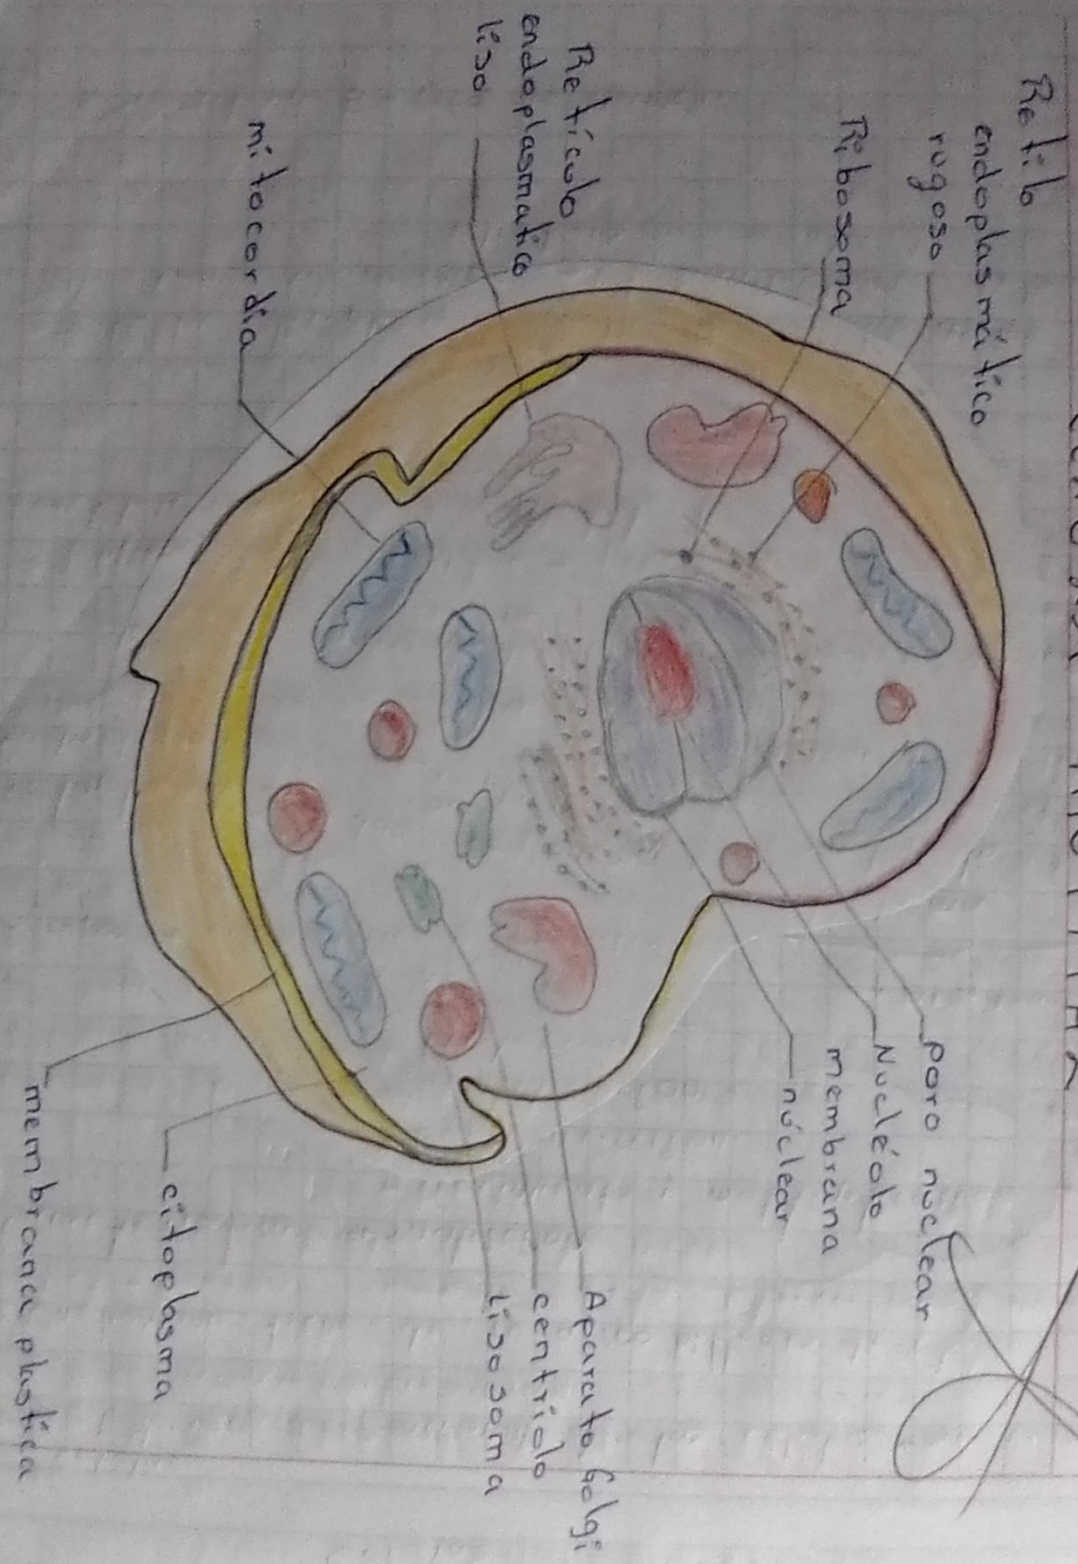 Retilo
endoplasmático
rugoso
Ribosoma
Retículo
endoplasmatico
liso
mitocordia
poro nuclear
Nucléolo
membrana
núclear
Aparato Golgi
centriolo
Lisosoma
citoplasma
membrana plastica